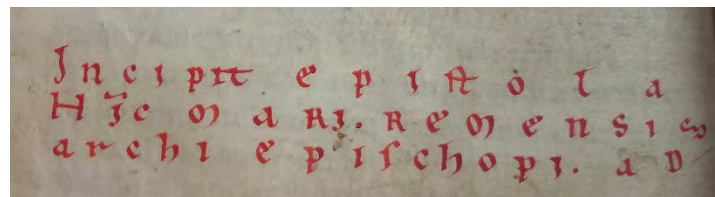 Incipit epistola
Hīcmari. Remensis
archiepiſchopi. ad